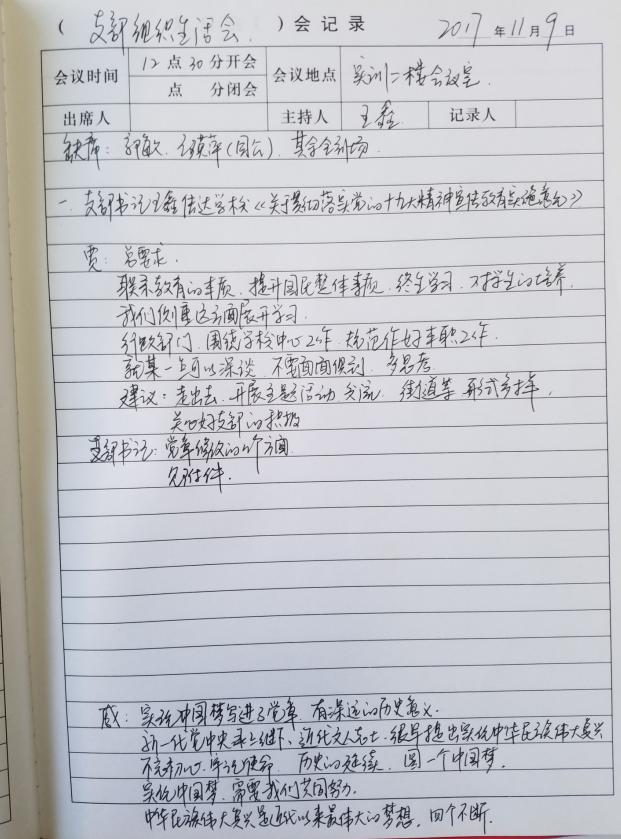 （ 支部组织生活会 ）会 记 录 2017 年 11 月 9 日
会议时间 12 点 30 分开会 会议地点 实训二楼会议室
点 分闭会
出席人 主持人 王鑫 记录人
缺席：郭敏、 萍（因公）、其余全到场
一、支部书记王鑫传达学校《关于贯彻落实党的十九大精神宣传教育实施意见》
贾：总要求.
联系教育的本质、提升国民整体素质、终生学习、对学生的培养.
我们侧重这方面展开学习.
行政部门、围绕学校中心工作、规范作好本职工作.
就某一点可以深谈、不要面面俱到、多思考
建议：走出去、开展主题活动、交流、街道等、形式多样，
关心好支部的积极
支部书记：党章修改的 个方面.
见附件.
戚：实现中国梦写进了党章、有深远的历史意义.
新一代党中央承上继下、近代文人志士、很早提出实现中华民族伟大复兴
不忘初心、牢记使命、历史的延续、圆一个中国梦.
实现中国梦、需要我们共同努力.
中华民族伟大复兴是近代以来最伟大的梦想、四个不断.